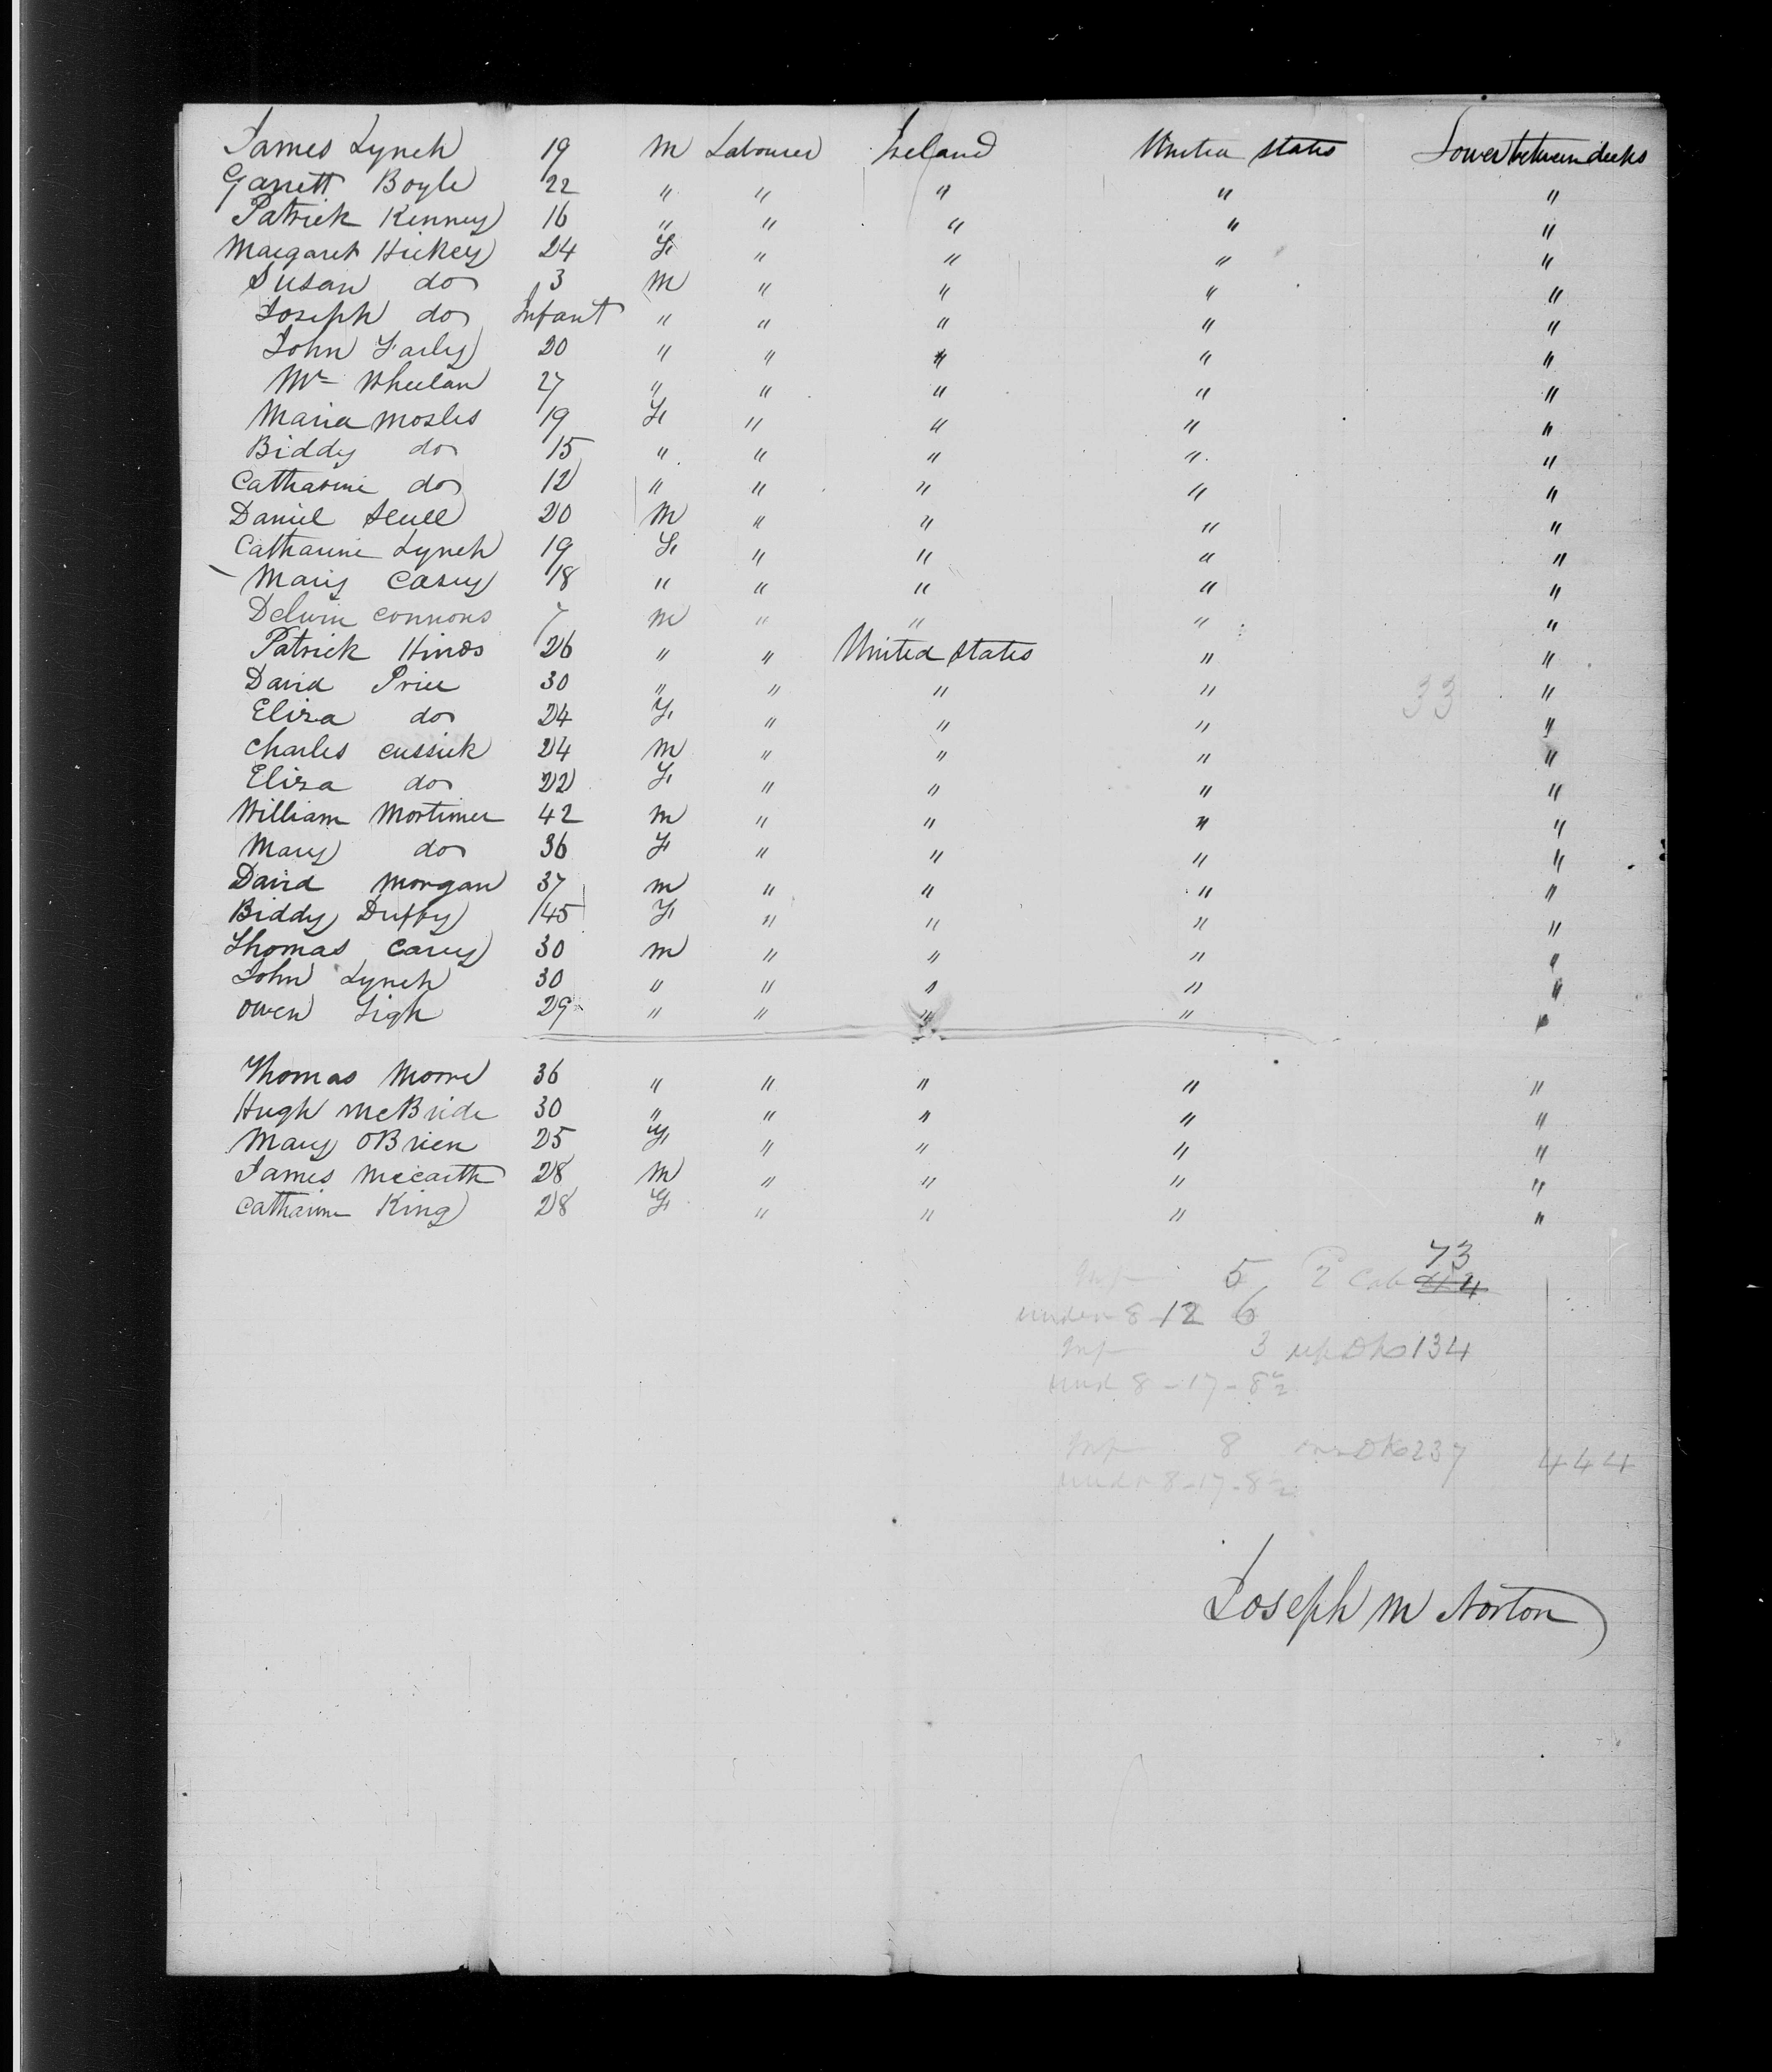 James Lynch 19 M Labourer Ireland United States Lower between decks
Garrett Boyle 22 " " " " "
Patrick Kenney 16 " " " " "
Margaret Hickey 24 F " " " "
Susan do 3 M " " " "
Joseph do Infant " " " " "
John Farley 20 " " " " "
Mr Wheelan 27 " " " " "
Maria 19 F " " " "
Biddy do 15 " " " " "
Catharine do 12 " " " " "
Daniel 20 M " " " "
Catharine Lynch 19 F " " " "
Mary Casey 18 " " " " "
Connors 7 M " " " "
Patrick Hinds 26 " " United States " "
David Price 30 " " " " "
33
Eliza do 24 F " " " "
Charles Cussick 24 M " " " "
Eliza do 22 F " " " "
William Mortimer 42 M " " " "
Mary do 36 F " " " "
David Morgan 37 M " " " "
Biddy Duffy 45 F " " " "
Thomas Carey 30 M " " " "
John Lynch 30 " " " " "
Owen Ligh 29 " " " " "
Thomas Moore 36 " " " " "
Hugh McBride 30 " " " " "
Mary OBrien 25 F " " " "
James McCarth 28 M " " " "
Catharine King 28 F " " " "
73
Inf 5 2 Cab 44
under 8 - 12 6
Inf 3 up Dk 134
und 8 - 17 - 8½
Inf 8 Dk 237 444
under 8 - 17 - 8½
Joseph M Norton